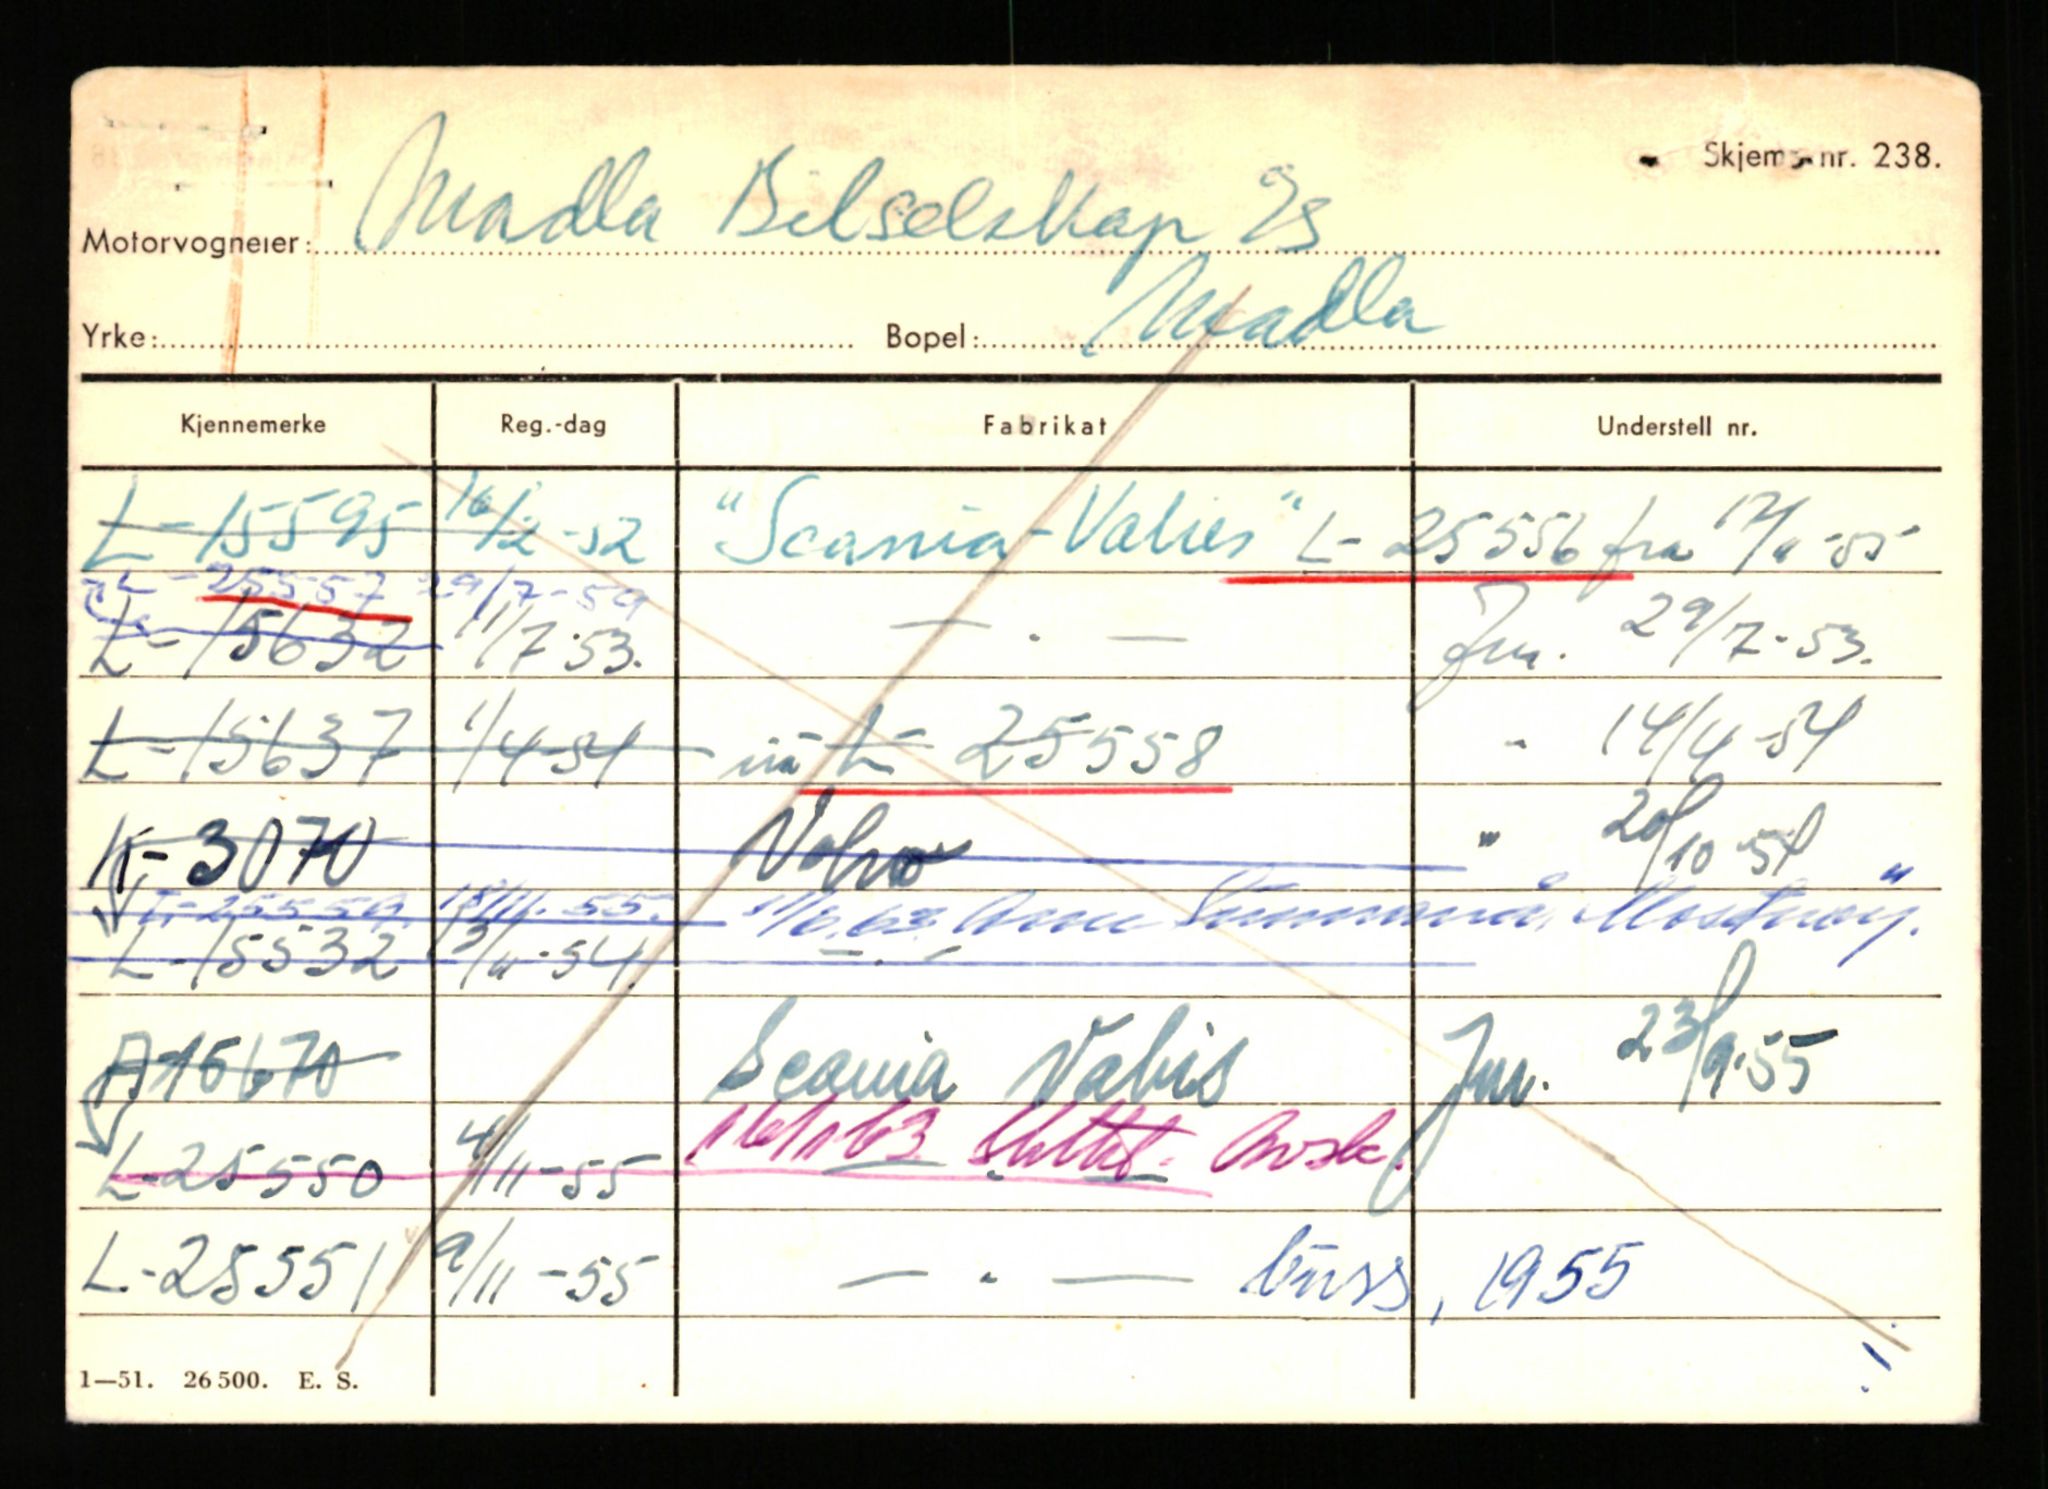 Skjema nr. 238.
Motorvogneier: Madla Bilselskap
Yrke: Bopel: Madla
Kjennemerke Reg.-dag Fabrikat Understell nr.
L-15595 16/2-52 "Scania-Vabis" L-25556 fra
L-25557 29/7-59
L-15632 11/7-53. — . — Jnr. 29/7-53.
L-15637 1/4-54 nå L-25558 - 14/4-54
K-3070 Volvo " 20/10-54
L-25559, 18/11-55. Mosterøy.
L-15532 — . —
A 16670 Scania Vabis Jnr. 23/9-55
16/1 63 Slettet. Avsk.
L-25550 4/11-55 — . —
L-25551 9/11-55 — . — buss, 1955
1—51. 26 500. E. S.